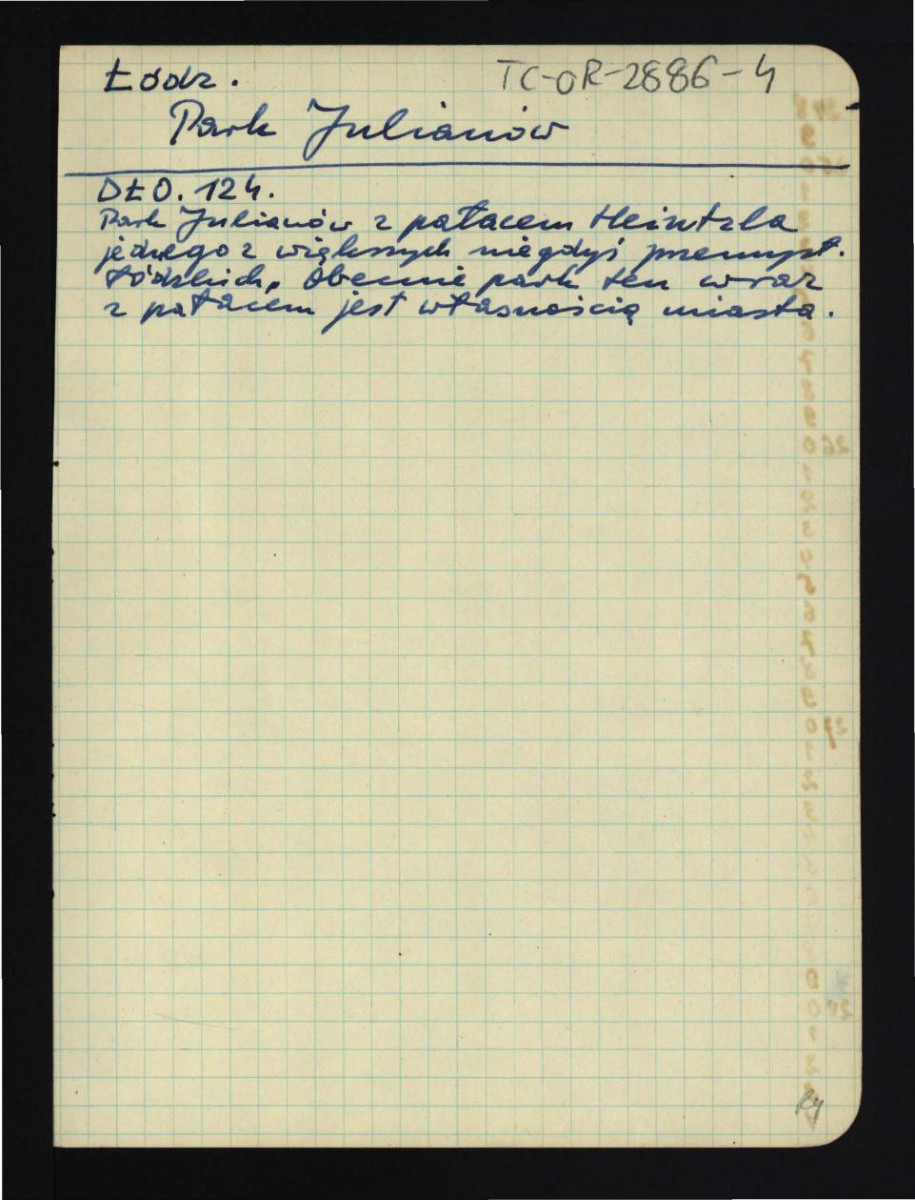 Łódź.
TC-OR-2886-4
Park Julianów
DŁO. 124.
Park Julianów z pałacem Heintzla
jednego z większych niegdyś przemysł.
łódzkich. Obecnie park ten wraz
z pałacem jest własnością miasta.